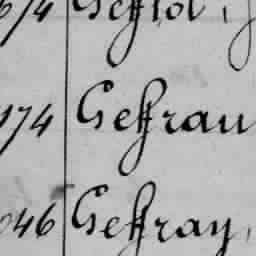 674 Geffrol,
174 Geffrau
046 Geffray,